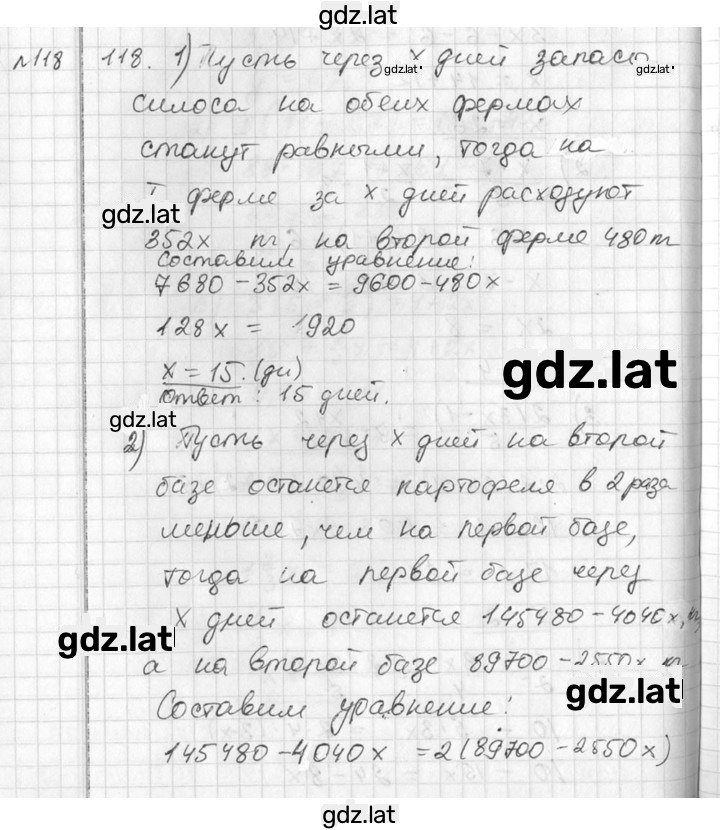 gdz.lat
№118 118. 1) Пусть через x дней запасы
gdz.lat gdz.lat
силоса на обеих фермах
станут равными, тогда на
I ферме за x дней расходуют
gdz.lat
352x т, на второй ферме 480т
Составим уравнение:
7680-352x = 9600-480x
128x = 1920
x = 15. (дн)
gdz.lat
Ответ: 15 дней.
gdz.lat
2) Пусть через x дней на второй
базе останется картофеля в 2 раза
меньше, чем на первой базе,
тогда на первой базе через
x дней останется 145480-4040x,
gdz.lat
а на второй базе 89700-2550x кг
gdz.lat
Составим уравнение:
145480-4040x = 2(89700-2550x)
gdz.lat